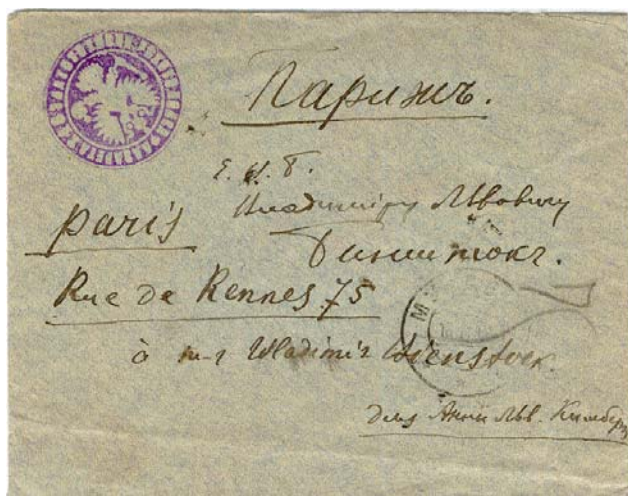 Парижъ.
Е. В. Б.
Владиміру Львовичу
paris
Бинштокъ.
Rue de Rennes 75
à m-r Wladimir Bienstock.
для Анны Льв.